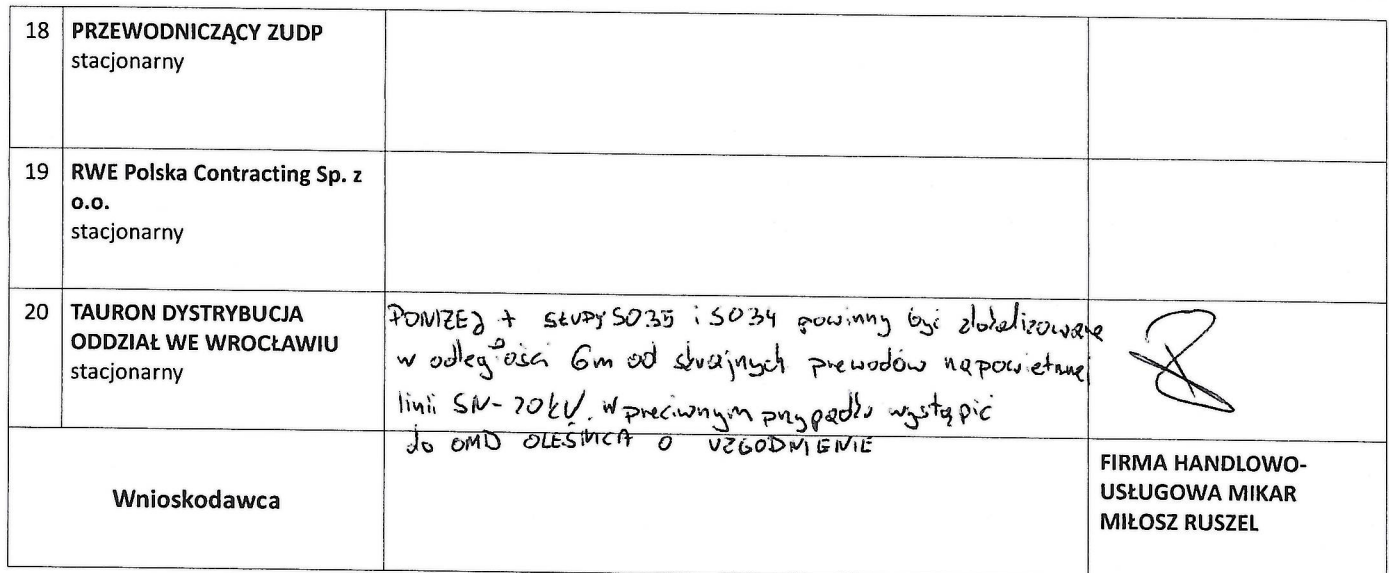 18 PRZEWODNICZĄCY ZUDP
stacjonarny
19 RWE Polska Contracting Sp. z
o.o.
stacjonarny
20 TAURON DYSTRYBUCJA
ODDZIAŁ WE WROCŁAWIU
stacjonarny
PONIŻEJ + SŁUPY SO35 i SO34 powinny być zlokalizowane
w odległości 6m od skrajnych przewodów napowietrznej
linii SN-20kV. W przeciwnym przypadku wystąpić
do OMD OLEŚNICA O UZGODNIENIE
Wnioskodawca
FIRMA HANDLOWO-
USŁUGOWA MIKAR
MIŁOSZ RUSZEL